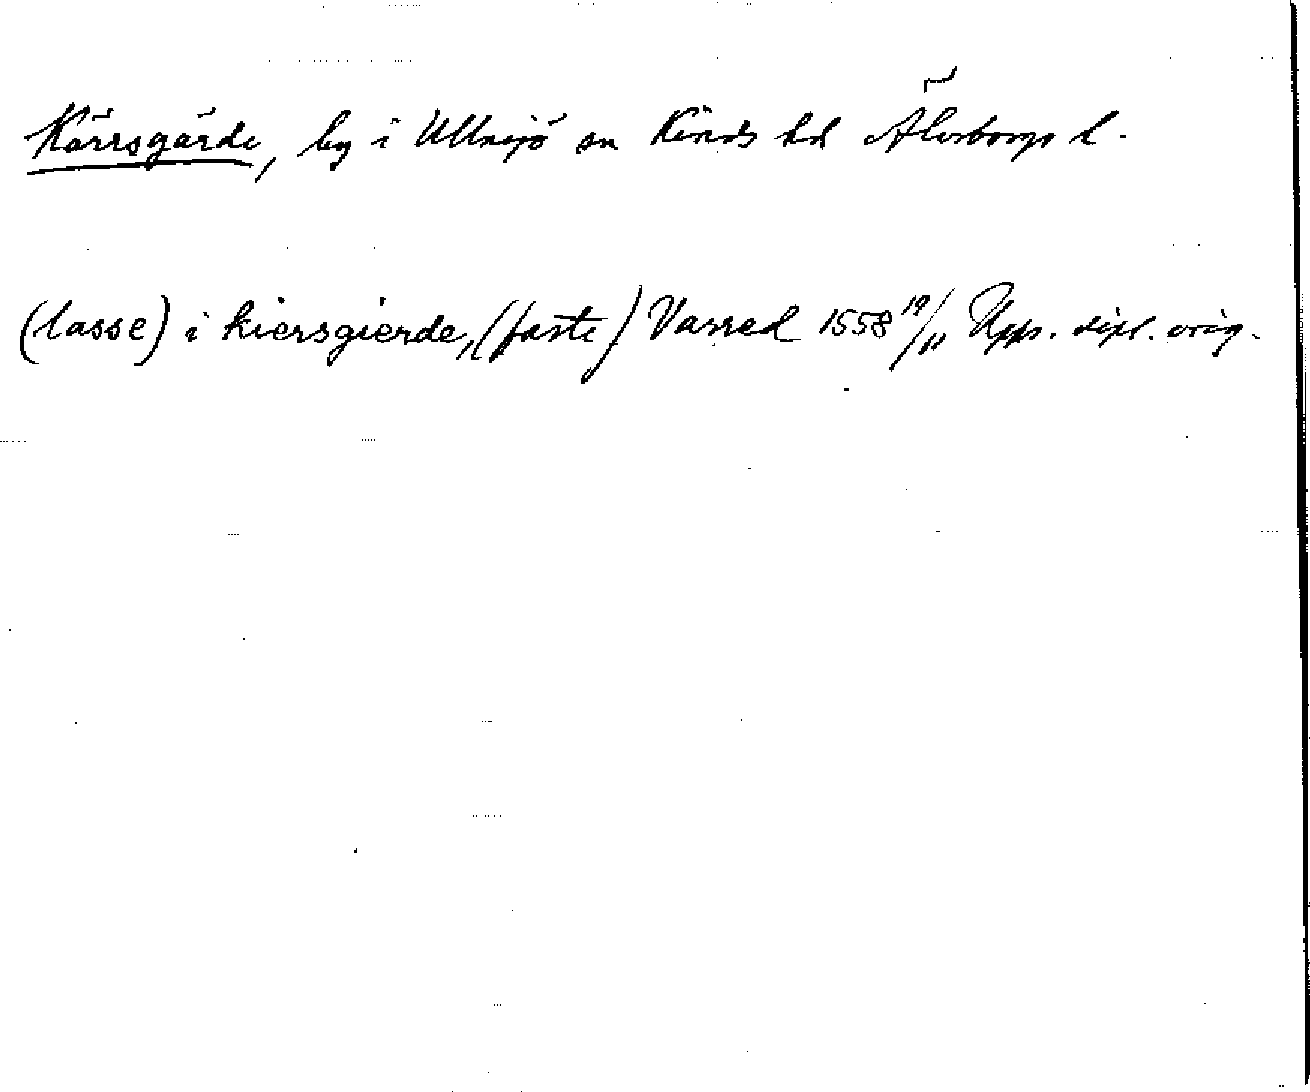 Kärrsgärde, by i Ullasjö sn Kinds hd Älvsborgs l.
(lasse) i kiersgierde, (faste) Vanned 1558 19/11 Upps. dipl. orig.